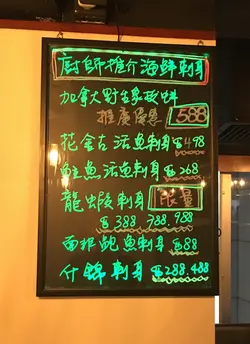 廚師推介海鮮刺身
加拿大野生象拔蚌
推廣優惠 588
花金古活魚刺身 $498
魚活魚刺身 $268
龍蝦刺身 限量
$388.788.988
南非鮑魚刺身 $88
什錦刺身 $288.488